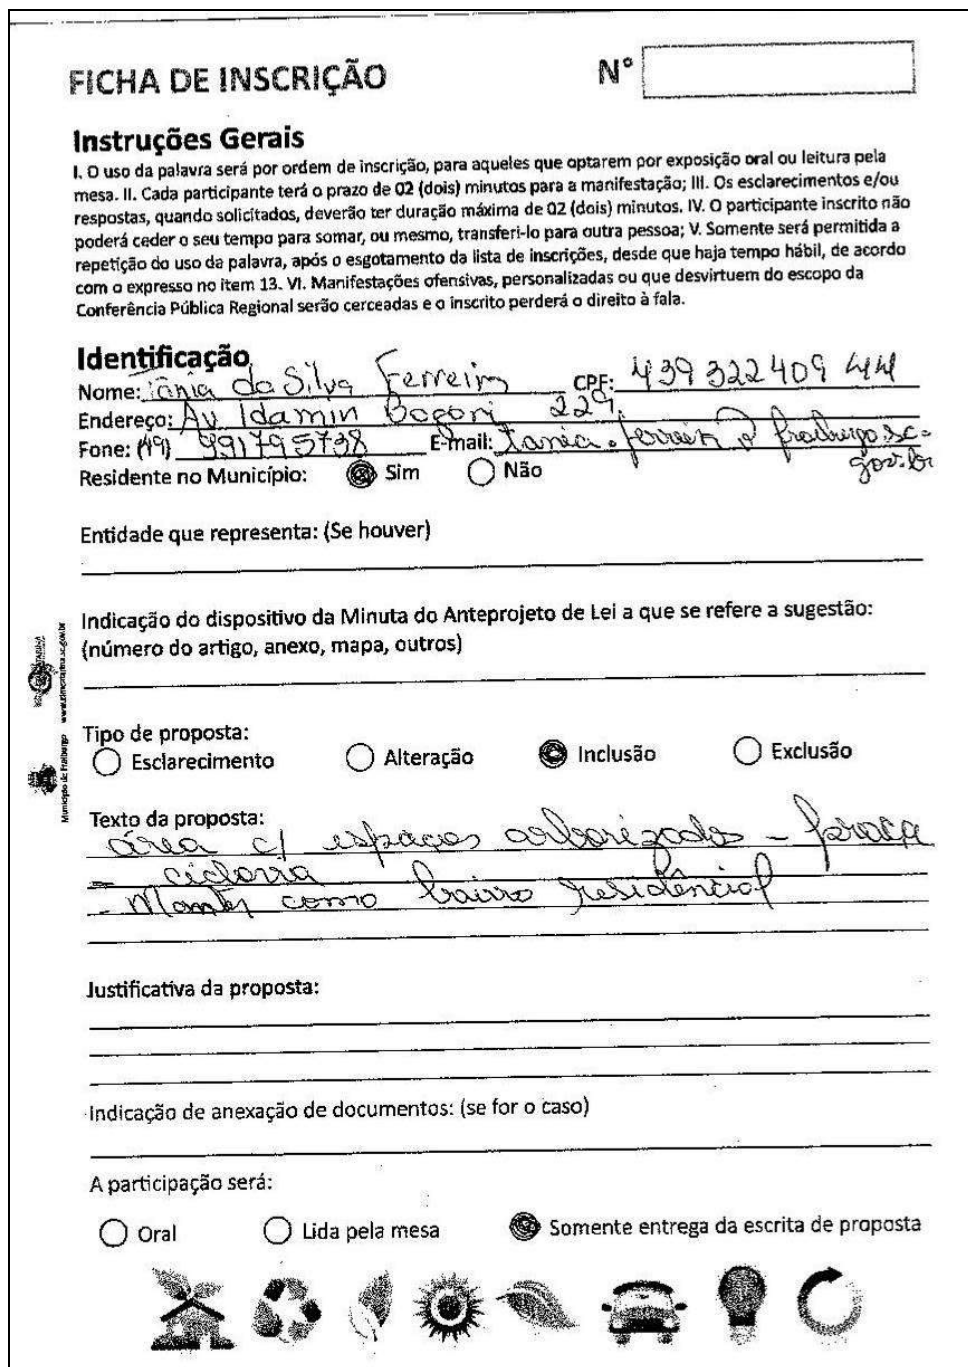 FICHA DE INSCRIÇÃO
N°
Instruções Gerais
I. O uso da palavra será por ordem de inscrição, para aqueles que optarem por exposição oral ou leitura pela
mesa. II. Cada participante terá o prazo de 02 (dois) minutos para a manifestação; III. Os esclarecimentos e/ou
respostas, quando solicitados, deverão ter duração máxima de 02 (dois) minutos. IV. O participante inscrito não
poderá ceder o seu tempo para somar, ou mesmo, transferi-lo para outra pessoa; V. Somente será permitida a
repetição do uso da palavra, após o esgotamento da lista de inscrições, desde que haja tempo hábil, de acordo
com o expresso no item 13. VI. Manifestações ofensivas, personalizadas ou que desvirtuem do escopo da
Conferência Pública Regional serão cerceadas e o inscrito perderá o direito à fala.
Identificação
Nome: Tânia da Silva Ferreira CPF: 439 322 409 44
Endereço: Av Idamin 229
Fone: (49) 991795738 E-mail: tania.ferreira@fraiburgo.sc.
gov.br
Residente no Município: Sim Não
Entidade que representa: (Se houver)
Indicação do dispositivo da Minuta do Anteprojeto de Lei a que se refere a sugestão:
(número do artigo, anexo, mapa, outros)
Município de Fraiburgo
Tipo de proposta:
Esclarecimento Alteração Inclusão Exclusão
Texto da proposta:
área c/ espaços arborizados - praça
- ciclovia
- Manter como bairro residêncial
Justificativa da proposta:
Indicação de anexação de documentos: (se for o caso)
A participação será:
Oral Lida pela mesa Somente entrega da escrita de proposta